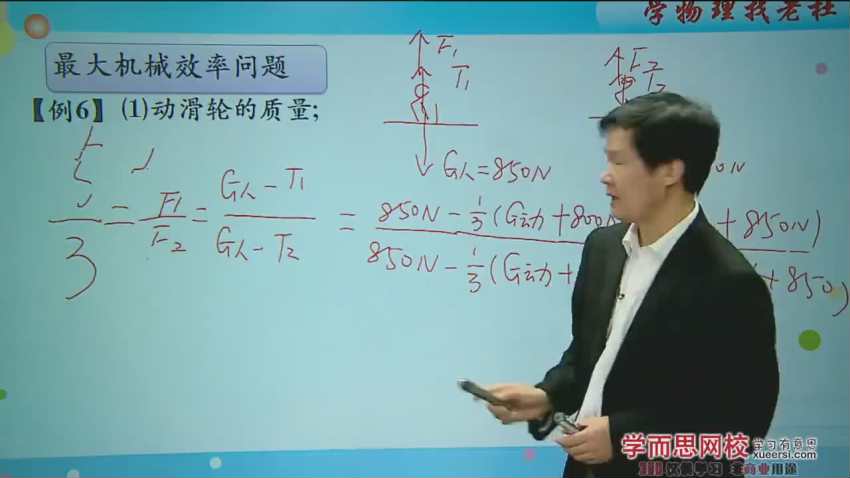 学物理找老杜
最大机械效率问题
【例6】(1)动滑轮的质量;
F₁
T₁
F₂
T₂
G人=850N
3
= F₁ / F₂ = G人-T₁ / G人-T₂ = 850N - 1/3(G动+800N
+850N)
850N - 1/3(G动+
+850)
学而思网校
学习有意思
xueersi.com